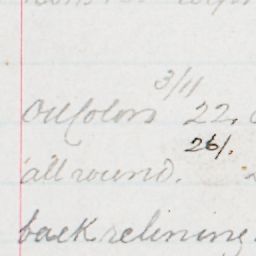 3/11
Oil Colors 22.
26/.
all round.
back relining.